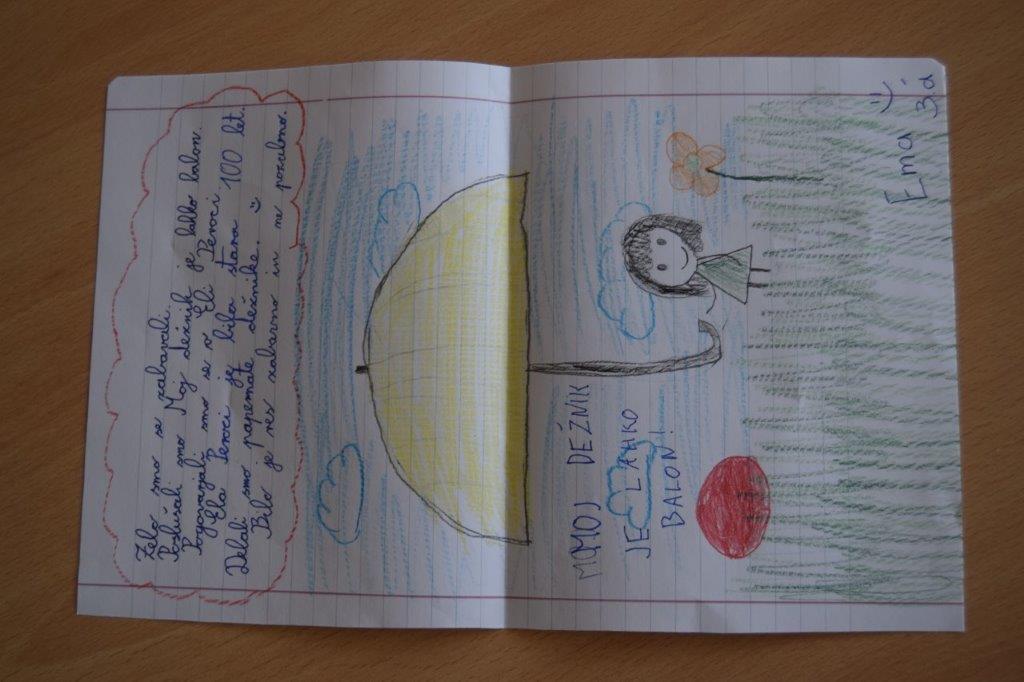 Zelo smo se zabavali.
Poslušali smo Moj dežnik je lahko balon.
Pogovarjali smo se o Eli Peroci.
Ela Peroci je bila stara 100 let.
Delali smo papirnate dežnike. :)
Bilo je res zabavno in ne pozabno.
MOMOJ DEŽNIK
JE LAHKO
BALON!
Ema :)
3.a